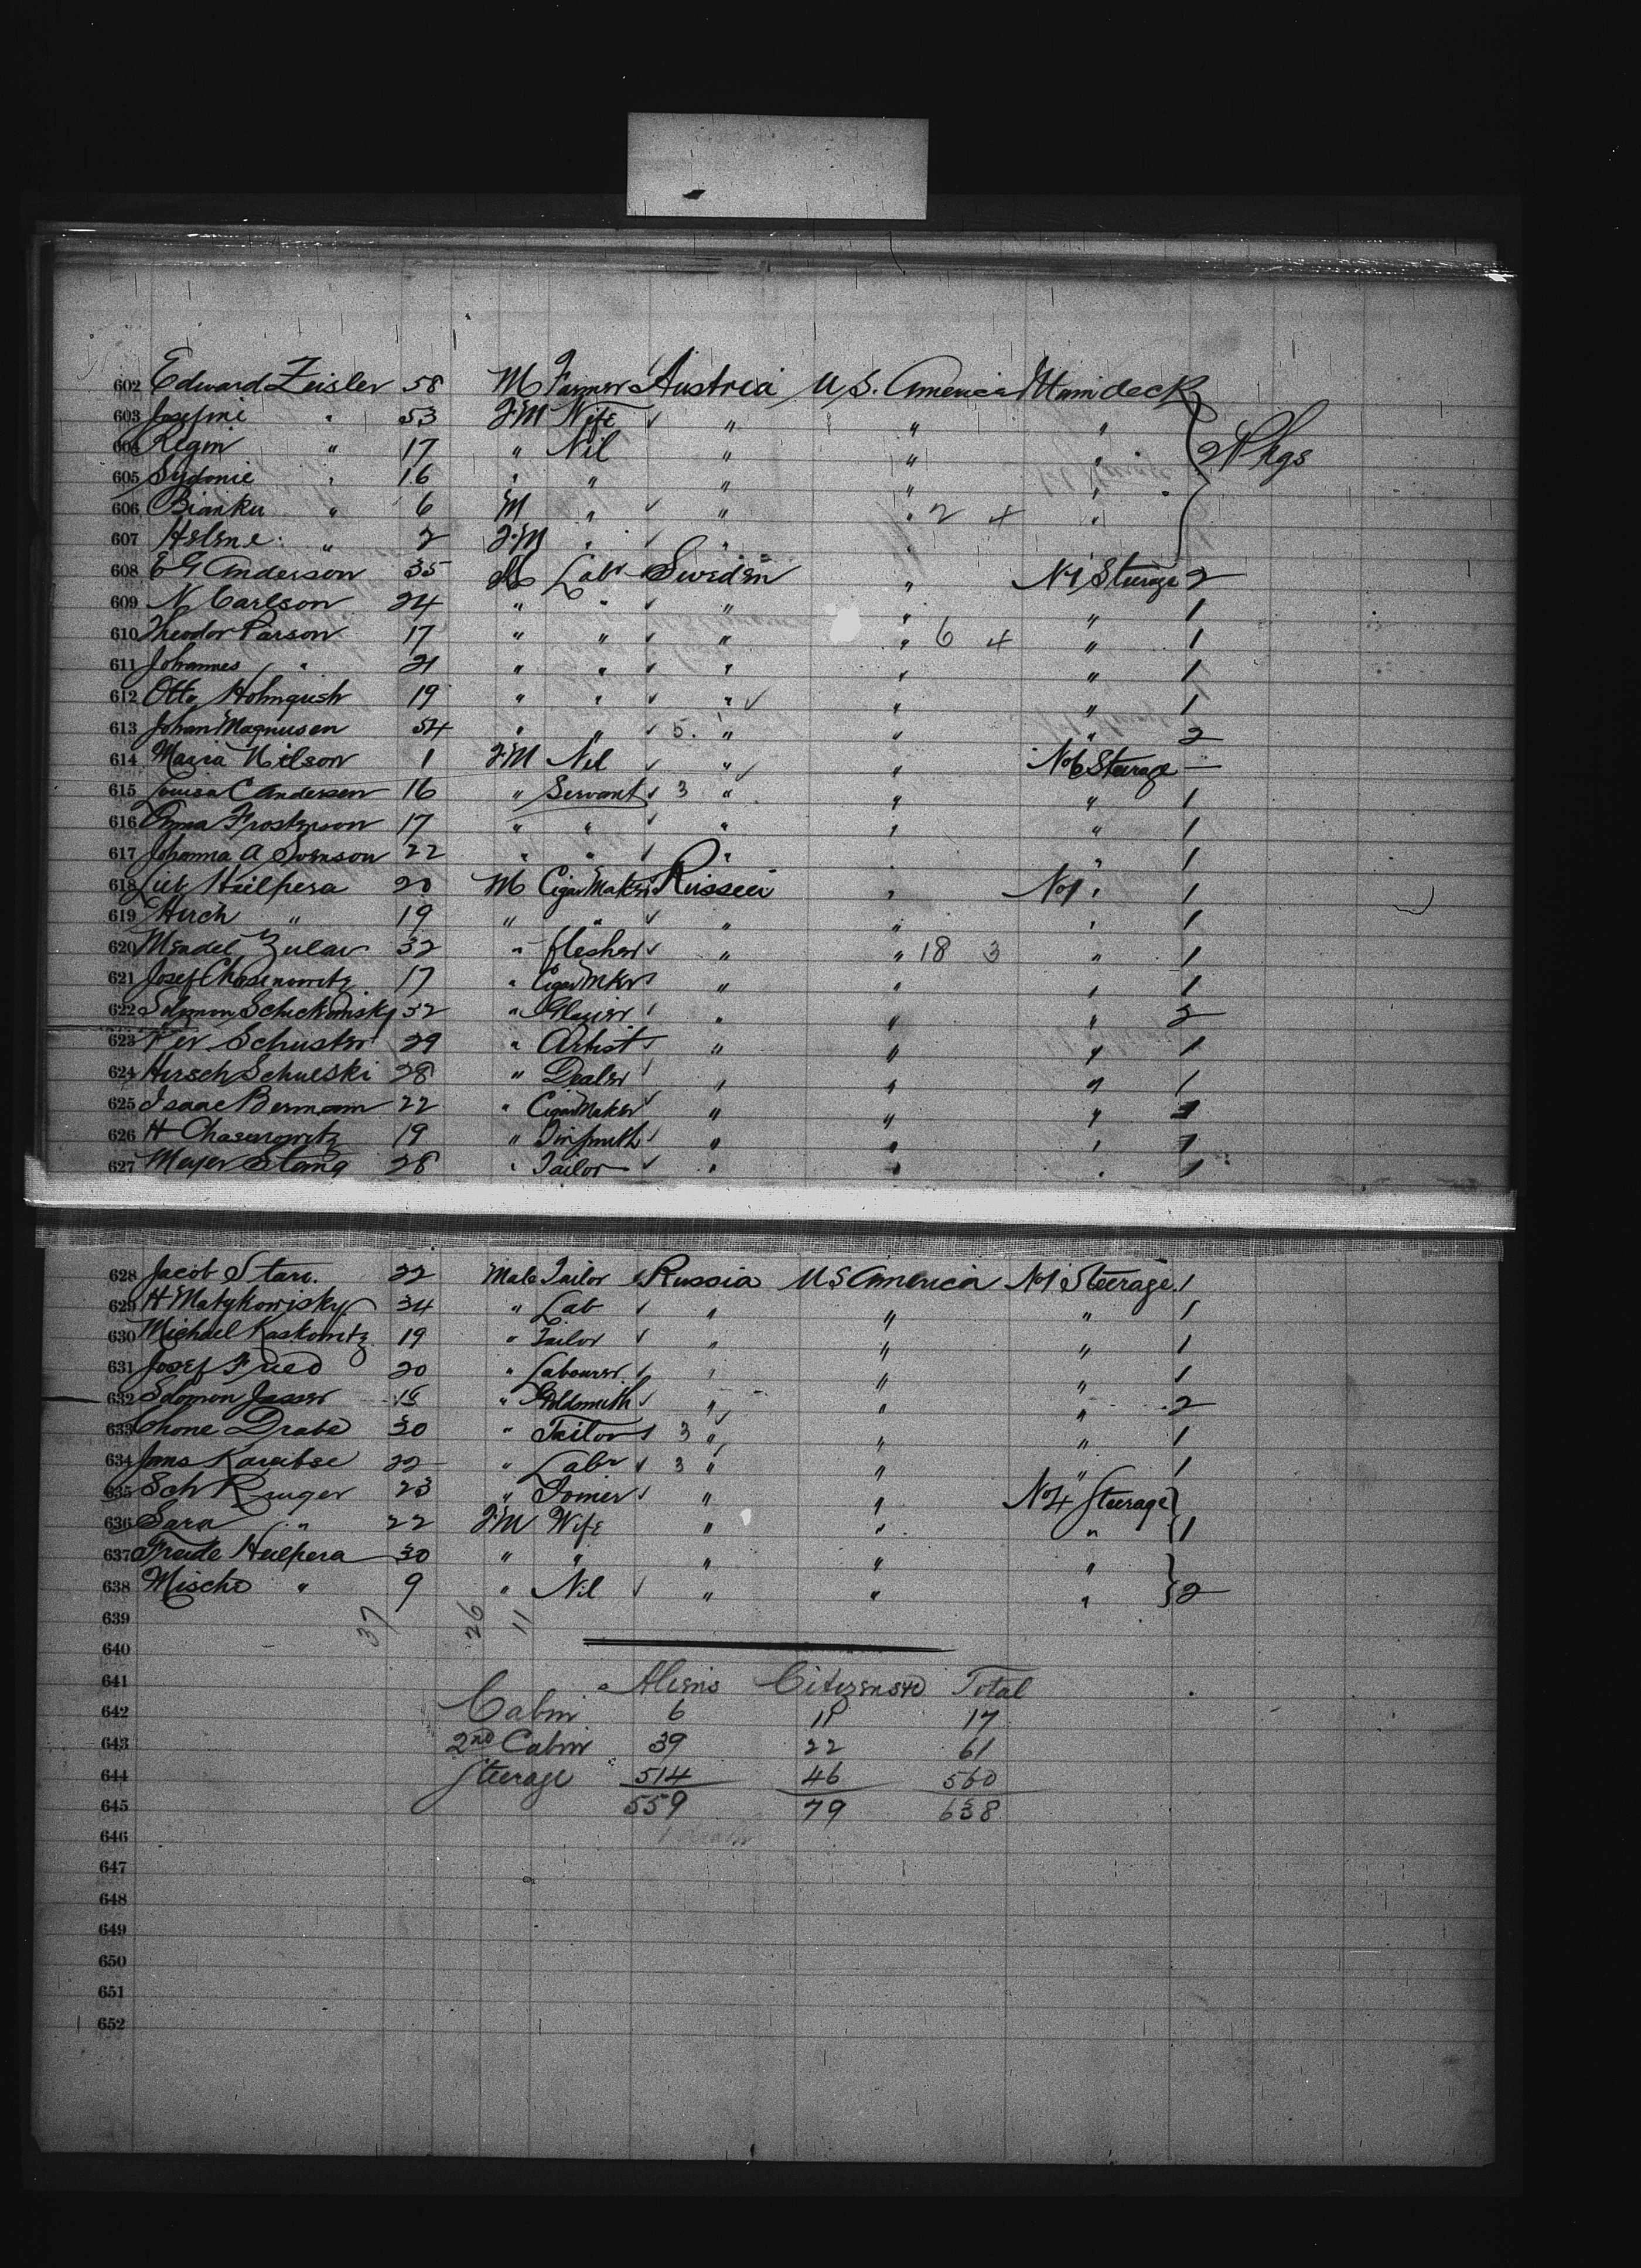 602 Edward Zeisler 58 M Farmer Austria U.S. America Main deck
603 Josefine " 53 F.M Wife " " "
604 Regin " 17 " Nil " " " 2 Pkgs
605 Sydonie " 16 " " " " "
606 Bianka " 6 M " " " 2 4 "
607 Helene " 2 F.M " " "
608 E G Anderson 35 M Labr Sweden " No 1 Steerage 2
609 N Carlson 24 " " " " " 1
610 Theodor Parson 17 " " " " 6 4 " 1
611 Johannes " 21 " " " " " 1
612 Otto Holmquish 19 " " " " " 1
613 Johan Magnusen 54 " " 5. " " " 2
614 Maria Nilson 1 F.M Nil " " No 6 Steerage —
615 Louisa C Andersen 16 " Servant 3 " " " 1
616 Anna Frosterson 17 " " " " " 1
617 Johanna A Svenson 22 " " " " " 1
618 Lieb Heilpera 20 M Cigar Maker Russia " No 1 " 1
619 Hirch " 19 " " " " " 1
620 Mendel Zular 32 " flesher " " 18 3 " 1
621 Josef Chasenowitz 17 " Cigar Mker " " " 1
622 Solomon 32 " Glazier " " " 2
623 Schuster 29 " Artist " " " 1
624 Hersch Schulski 28 " Dealer " " " 1
625 Isaac Bermann 22 " Cigar Maker " " " 1
626 H Chasenowitz 19 " Tinsmith " " " 1
627 Meyer Stang 28 " Tailor " " " 1
628 Jacob Starr. 22 Male Tailor Russia U S America No 1 Steerage 1
629 H Matykowisky 34 " Lab " " " 1
630 Michael Kaskowitz 19 " Tailor " " " 1
631 Josef Fried 20 " Labourer " " " 1
632 Solomon Jasser 18 " Goldsmith " " " 2
633 Chone Drabe 30 " Tailor 3 " " " 1
634 Jans Kareibse 22 " Labr 3 " " " 1
635 Sch Kruger 23 " Joiner " " No 4 Steerage
636 Sara " 22 F.M Wife " " " 1
637 Freide Heilpera 30 " " " " "
638 Mische " 9 " Nil " " " 2
639 37 26 11
640
641 Aliens Citizens Total
642 Cabin 6 11 17
643 2nd Cabin 39 22 61
644 Steerage 514 46 560
645 559 79 638
646
647
648
649
650
651
652